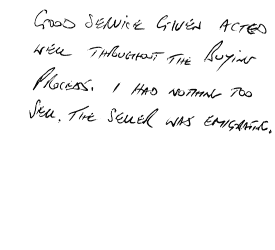 GOOD SERVICE GIVEN ACTED
WELL THROUGHOUT THE BUYING
PROCESS. I HAD NOTHING TOO
SELL. THE SELLER WAS EMIGRATING.